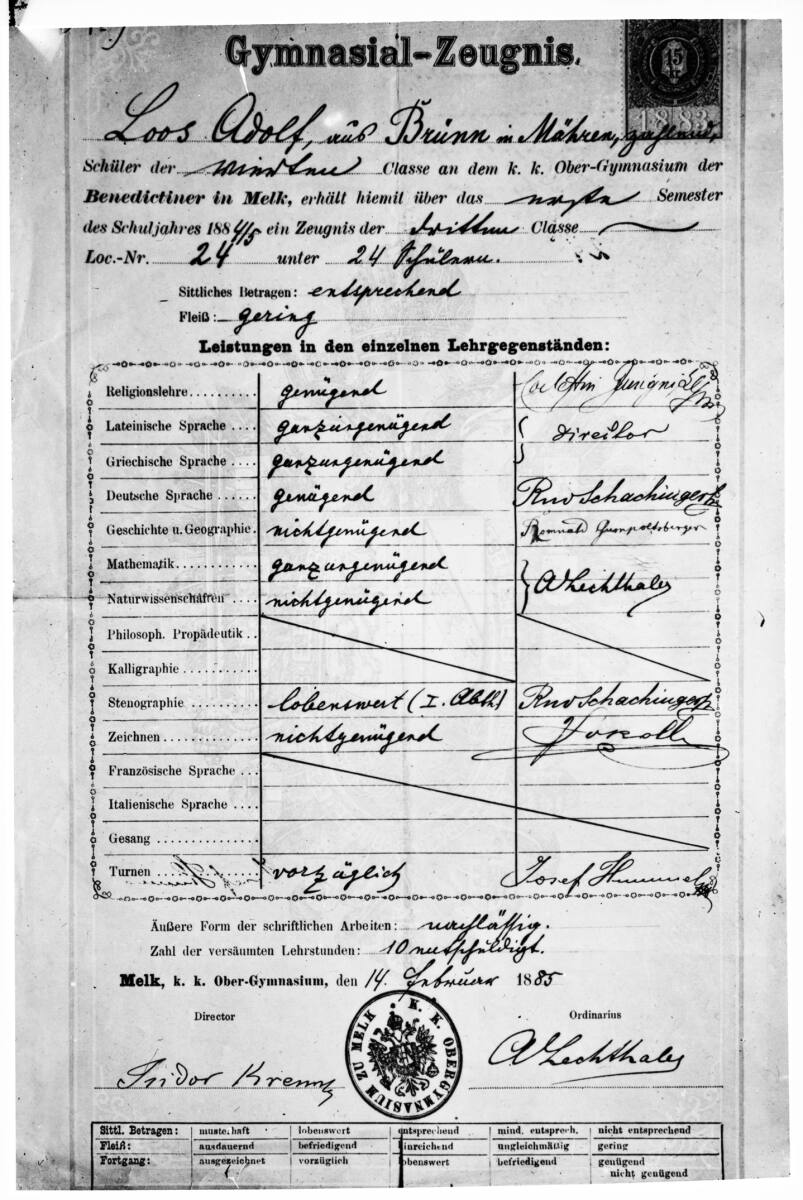 Gymnasial-Zeugnis.
15
kr
1883
Loos Adolf, aus Brünn in Mähren, zahlend,
Schüler der vierten Classe an dem k. k. Ober-Gymnasium der
Benedictiner in Melk, erhält hiemit über das erste Semester
des Schuljahres 1884/5 ein Zeugnis der dritten Classe
Loc.-Nr. 24 unter 24 Schülern.
Sittliches Betragen: entsprechend
Fleiß: gering
Leistungen in den einzelnen Lehrgegenständen:
Religionslehre.......... genügend
Lateinische Sprache .... ganzungenügend Director
Griechische Sprache .... ganzungenügend
Deutsche Sprache ....... genügend Schachinger
Geschichte u. Geographie. nichtgenügend
Mathematik............ ganzungenügend
Naturwissenschaften .... nichtgenügend A Lechthaler
Philosoph. Propädeutik ..
Kalligraphie ...........
Stenographie .......... lobenswert (I. Abth.) Schachinger
Zeichnen .............. nichtgenügend
Französische Sprache ...
Italienische Sprache ....
Gesang ................
Turnen vorzüglich Josef
Äußere Form der schriftlichen Arbeiten: nachlässig.
Zahl der versäumten Lehrstunden: 10 entschuldigt.
Melk, k. k. Ober-Gymnasium, den 14. Februar 1885
Director
Ordinarius
K. K. OBERGYMNASIUM ZU MELK
Isidor
A Lechthaler
Sittl. Betragen: musterhaft lobenswert entsprechend mind. entsprech. nicht entsprechend
Fleiß: ausdauernd befriedigend hinreichend ungleichmäßig gering
Fortgang: ausgezeichnet vorzüglich lobenswert befriedigend genügend
nicht genügend